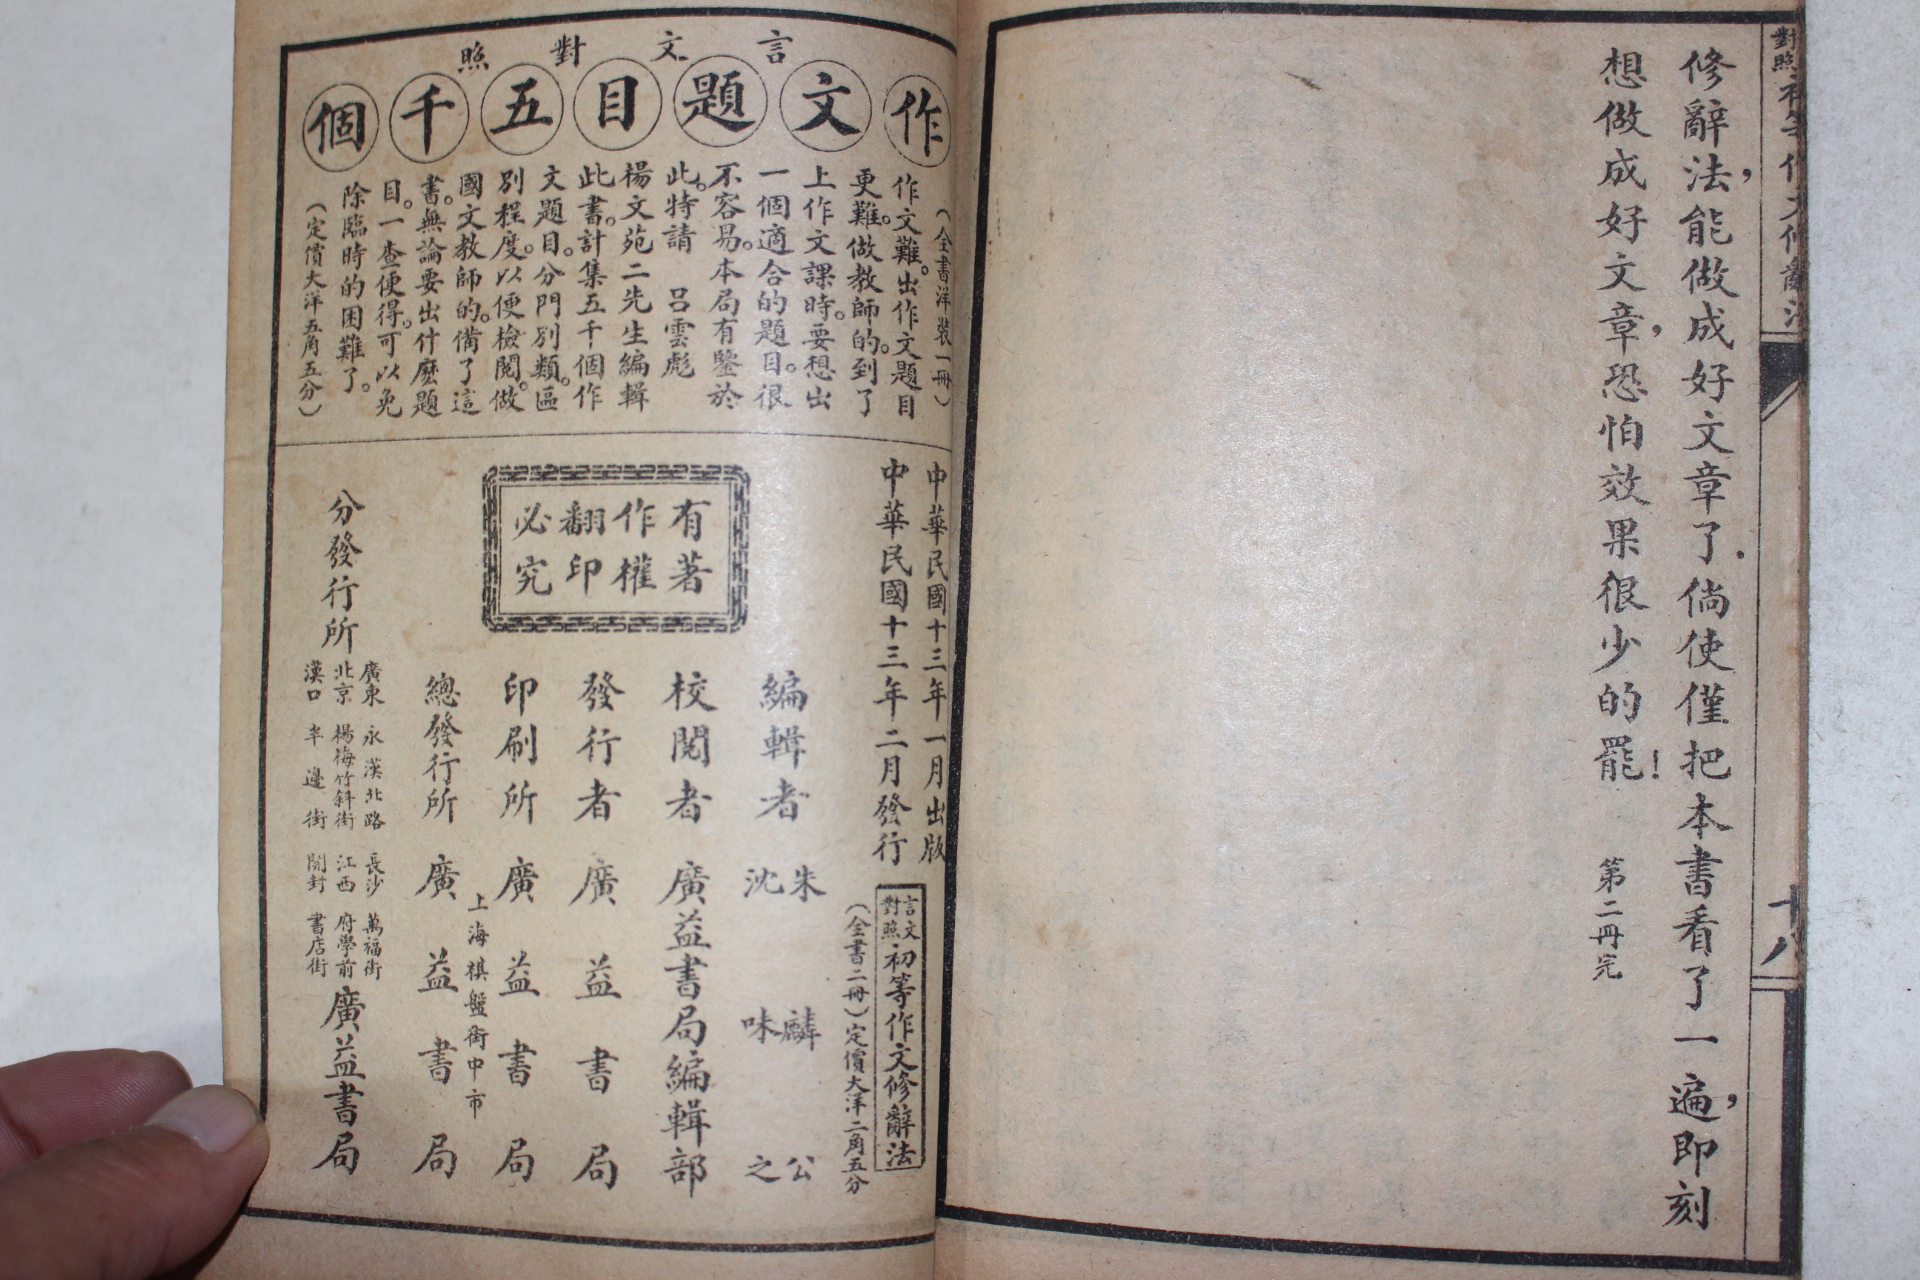 修辭法，能做成好文章了．倘使僅把本書看了一遍，即刻
想做成好文章，恐怕效果很少的罷！
第二冊完
對照初等作文修辭法
十八
言文對照
作文題目五千個
（全書洋裝一冊）
作文難。出作文題目
更難。做教師的。到了
上作文課時。要想出
一個適合的題目。很
不容易。本局有鑒於
此。特請　呂雲彪
楊文苑二先生編輯
此書。計集五千個作
文題目。分門別類。區
別程度。以便檢閱。做
國文教師的。備了這
書。無論要出什麼題
目。一查便得。可以免
除臨時的困難了。
（定價大洋五角五分）
中華民國十三年一月出版
中華民國十三年二月發行
言文對照初等作文修辭法
（全書二冊）定價大洋二角五分
有著
作權
翻印
必究
編輯者　朱麟公
沈味之
校閱者　廣益書局編輯部
發行者　廣益書局
印刷所　廣益書局
上海棋盤街中市
總發行所　廣益書局
分發行所
廣東　永漢北路　長沙　萬福街
北京　楊梅竹斜街　江西　府學前
漢口　半邊街　開封　書店街
廣益書局